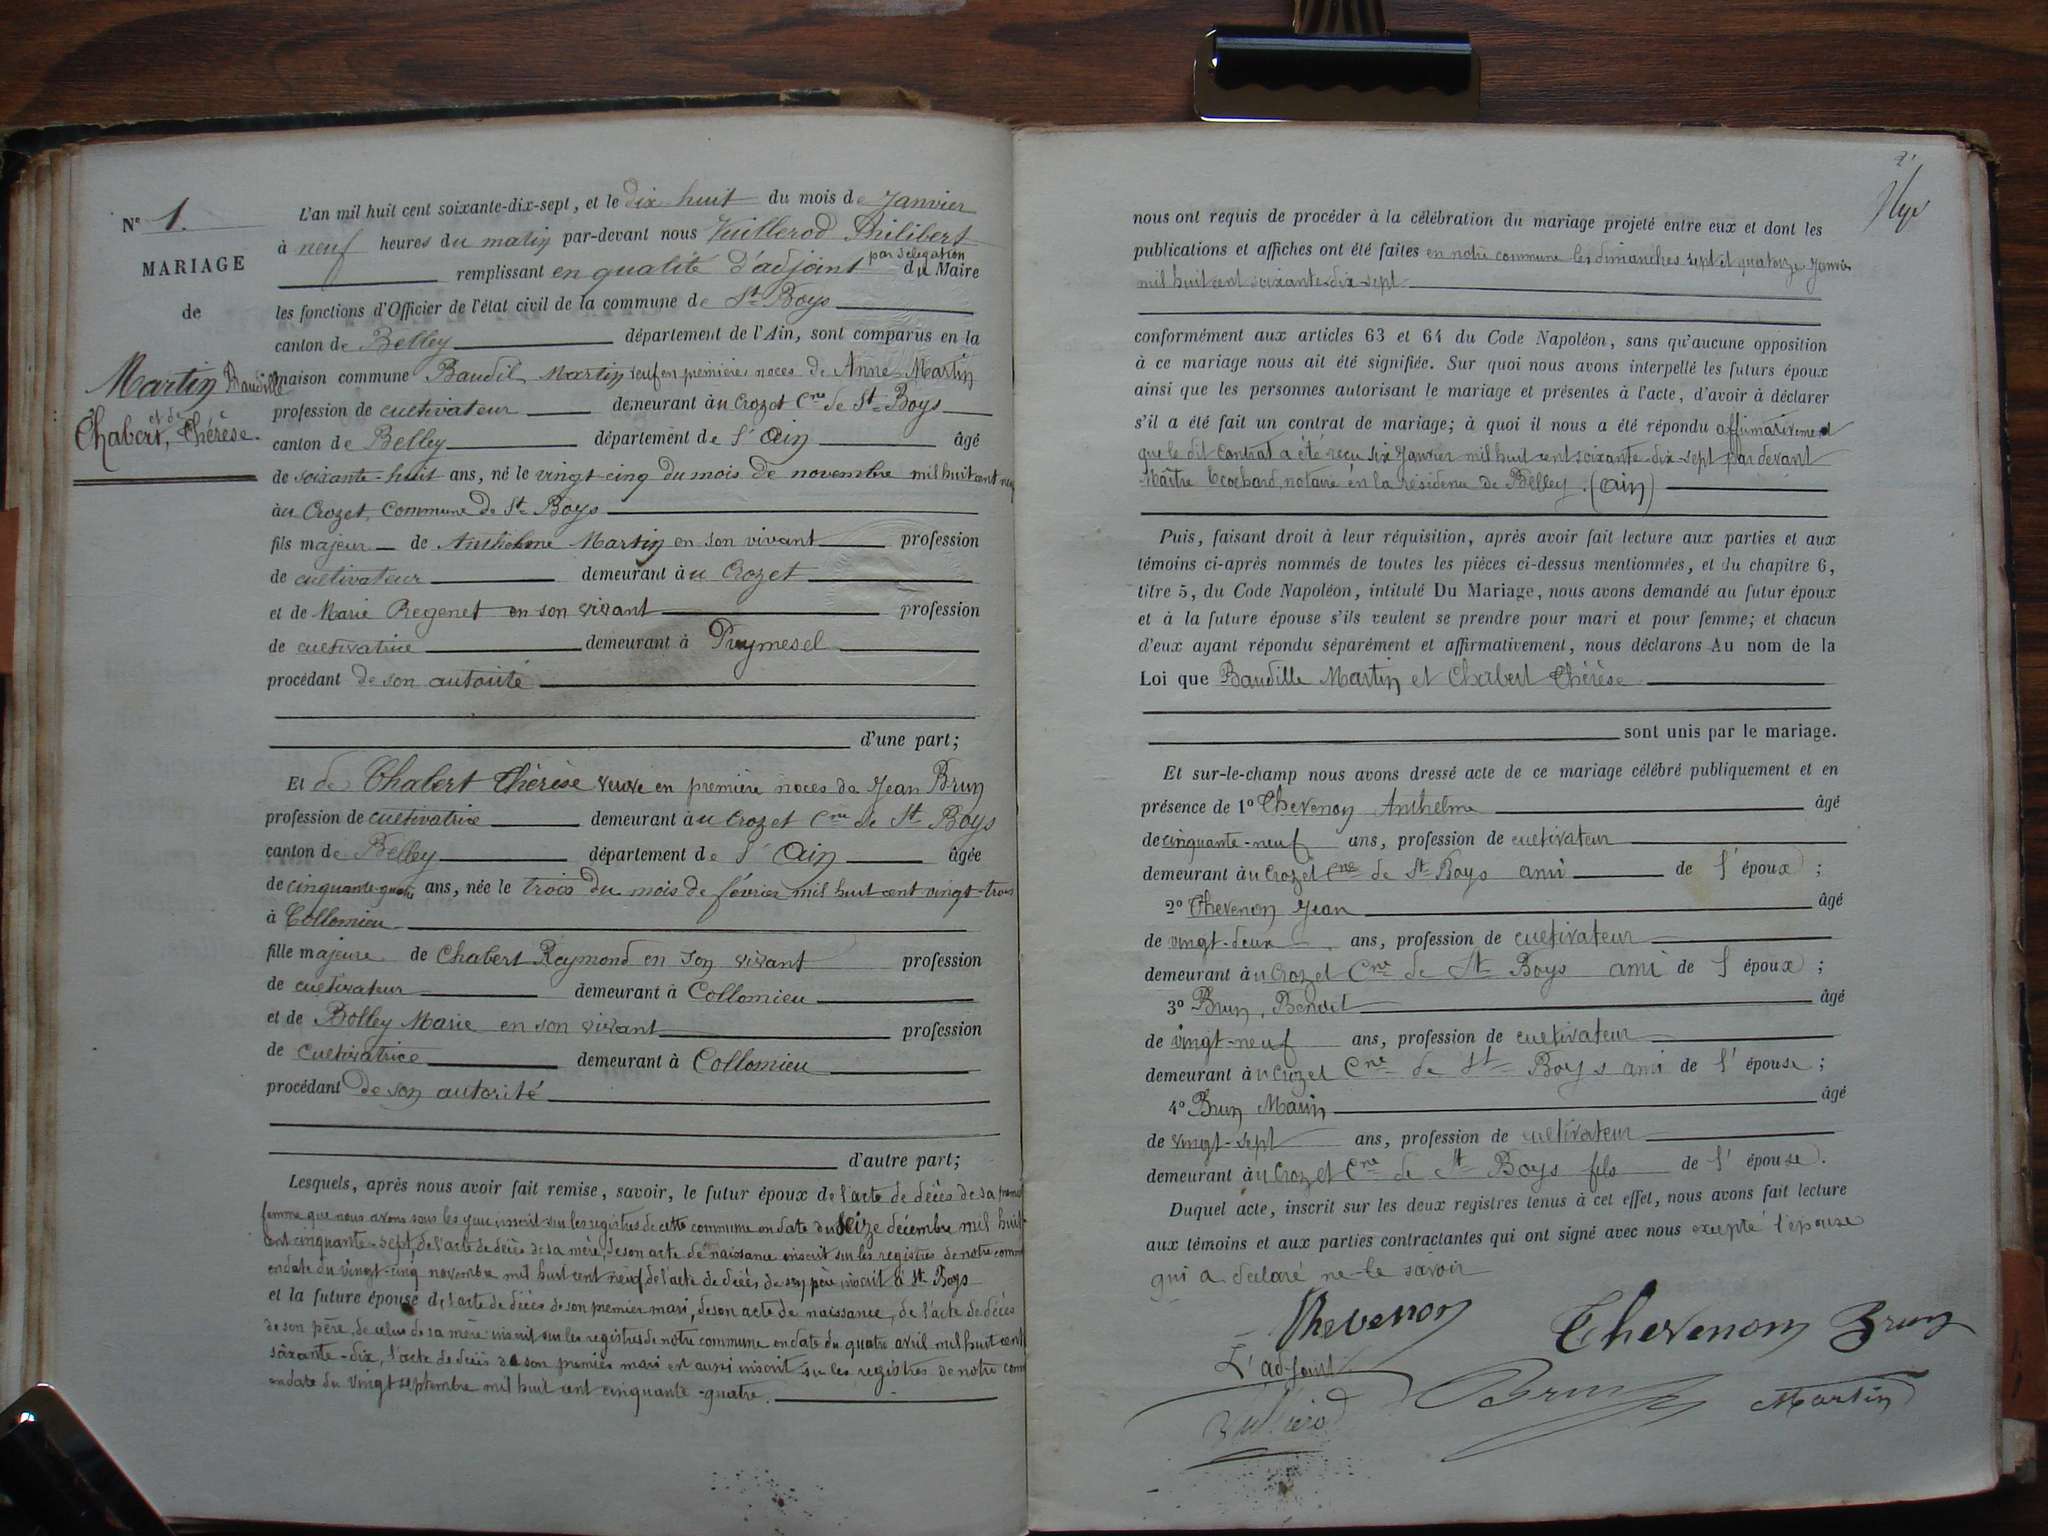 N° 1.
MARIAGE
de
Martin Baudille
et de
Chabert, Thérèse.
L'an mil huit cent soixante-dix-sept, et le dix huit du mois de Janvier
à neuf heures du matin par-devant nous Vuillerod Philibert
remplissant en qualité d'adjoint par délégation du Maire
les fonctions d'Officier de l'état civil de la commune de St Boys
canton de Belley département de l'Ain, sont comparus en la
maison commune Baudil Martin veuf en première noces de Anne Martin
profession de cultivateur demeurant àu Crozet Cne de St Boys
canton de Belley département de l'Ain âgé
de soixante-huit ans, né le vingt-cinq du mois de novembre mil huit cent neuf
àu Crozet, Commune de St Boys
fils majeur de Anthelme Martin en son vivant profession
de cultivateur demeurant àu Crozet
et de Marie Regenet en son vivant profession
de cultivatrice demeurant à Puymesel
procédant de son autorité
d'une part;
Et de Chabert Thérèse veuve en première noces de Jean Brun
profession de cultivatrice demeurant àu Crozet Cne de St Boys
canton de Belley département de l'Ain âgée
de cinquante quatre ans, née le trois du mois de février mil huit cent vingt-trois
à Collomieu
fille majeure de Chabert Reymond en son vivant profession
de cultivateur demeurant à Collomieu
et de Bolley Marie en son vivant profession
de cultivatrice demeurant à Collomieu
procédant de son autorité
d'autre part;
Lesquels, après nous avoir fait remise, savoir, le futur époux de l'acte de décès de sa
femme que nous avons sous les yeux inscrit sur les registres de cette commune en date du seize décembre mil huit
cent cinquante-sept, de l'acte de décès de sa mère, de son acte de naissance inscrit sur les registres de notre
en date du vingt-cinq novembre mil huit cent neuf de l'acte de décès de son père inscrit à St Boys
et la future épouse de l'acte de décès de son premier mari, de son acte de naissance, de l'acte de décès
de son père, de celui de sa mère inscrit sur les registres de notre commune en date du quatre avril mil huit cent
soixante-dix, l'acte de décès de son premier mari est aussi inscrit sur les registres de notre
en date du vingt septembre mil huit cent cinquante-quatre.
nous ont requis de procéder à la célébration du mariage projeté entre eux et dont les
publications et affiches ont été faites en notre commune les dimanches sept et quatorze Janvier
mil huit cent soixante-dix-sept
conformément aux articles 63 et 64 du Code Napoléon, sans qu'aucune opposition
à ce mariage nous ait été signifiée. Sur quoi nous avons interpellé les futurs époux
ainsi que les personnes autorisant le mariage et présentes à l'acte, d'avoir à déclarer
s'il a été fait un contrat de mariage; à quoi il nous a été répondu affirmativement
que le dit Contrat a été reçu six Janvier mil huit cent soixante-dix-sept par devant
Maître notaire en la résidence de Belley. (Ain)
Puis, faisant droit à leur réquisition, après avoir fait lecture aux parties et aux
témoins ci-après nommés de toutes les pièces ci-dessus mentionnées, et du chapitre 6,
titre 5, du Code Napoléon, intitulé Du Mariage, nous avons demandé au futur époux
et à la future épouse s'ils veulent se prendre pour mari et pour femme; et chacun
d'eux ayant répondu séparément et affirmativement, nous déclarons Au nom de la
Loi que Baudille Martin et Chabert Thérèse
sont unis par le mariage.
Et sur-le-champ nous avons dressé acte de ce mariage célébré publiquement et en
présence de 1° Thevenon Anthelme âgé
de cinquante-neuf ans, profession de cultivateur
demeurant àu Crozet Cne de St Boys ami de l'époux;
2° Thevenon Jean âgé
de vingt-deux ans, profession de cultivateur
demeurant àu Crozet Cne de St Boys ami de l'époux;
3° Brun, Benoit âgé
de vingt-neuf ans, profession de cultivateur
demeurant àu Crozet Cne de St Boys ami de l'épouse;
4° Brun Marin âgé
de vingt-sept ans, profession de cultivateur
demeurant àu Crozet Cne de St Boys fils de l'épouse.
Duquel acte, inscrit sur les deux registres tenus à cet effet, nous avons fait lecture
aux témoins et aux parties contractantes qui ont signé avec nous excepté l'épouse
qui a déclaré ne le savoir
Thevenon Thevenon Brun
L'adjoint
Vuillerod Brun Martin